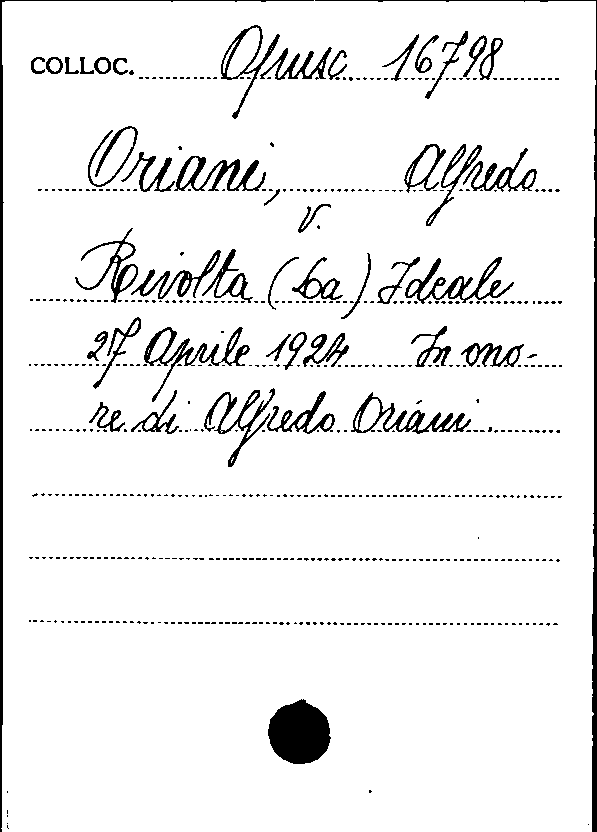 COLLOC. Opusc. 16798
Oriani, Alfredo
v.
Rivolta (La) Ideale
27 Aprile 1924 In ono-
re di Alfredo Oriani.